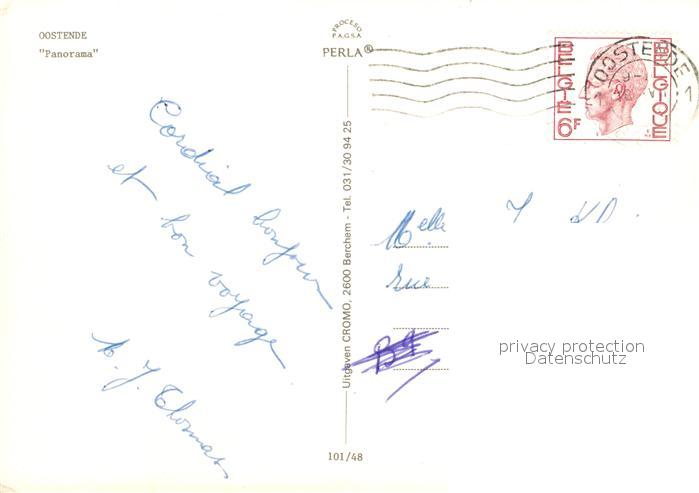 OOSTENDE
"Panorama"
PROCESO
P.A.G.S.A
PERLA®
BELGIE
6F
BELGIQUE
OOSTENDE 1
Cordial bonjour
et bon voyage
J. Thomas
Uitgaven CROMO, 2600 Berchem - Tel. 031/30 94 25
Melle
rue
privacy protection
Datenschutz
101/48